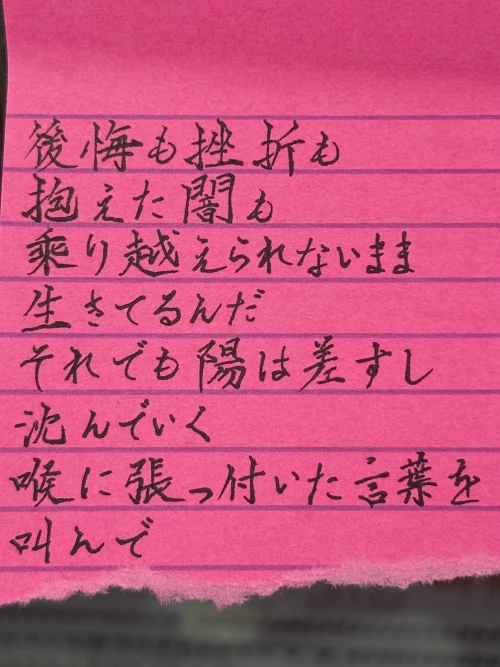 後悔も挫折も
抱えた闇も
乗り越えられないまま
生きてるんだ
それでも陽は差すし
沈んでいく
喉に張っ付いた言葉を
叫んで